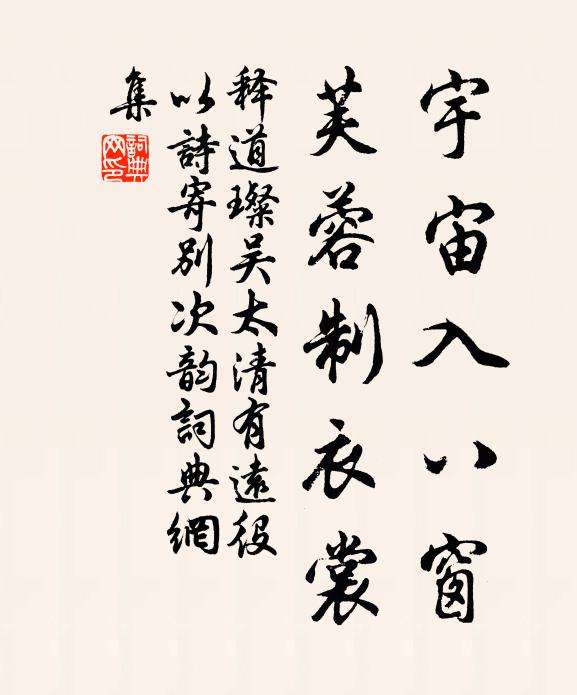 宇宙入八窗
芙蓉制衣裳
释道璨吴太清有遠役
以詩寄別次韵詞典網
集
詞典網印